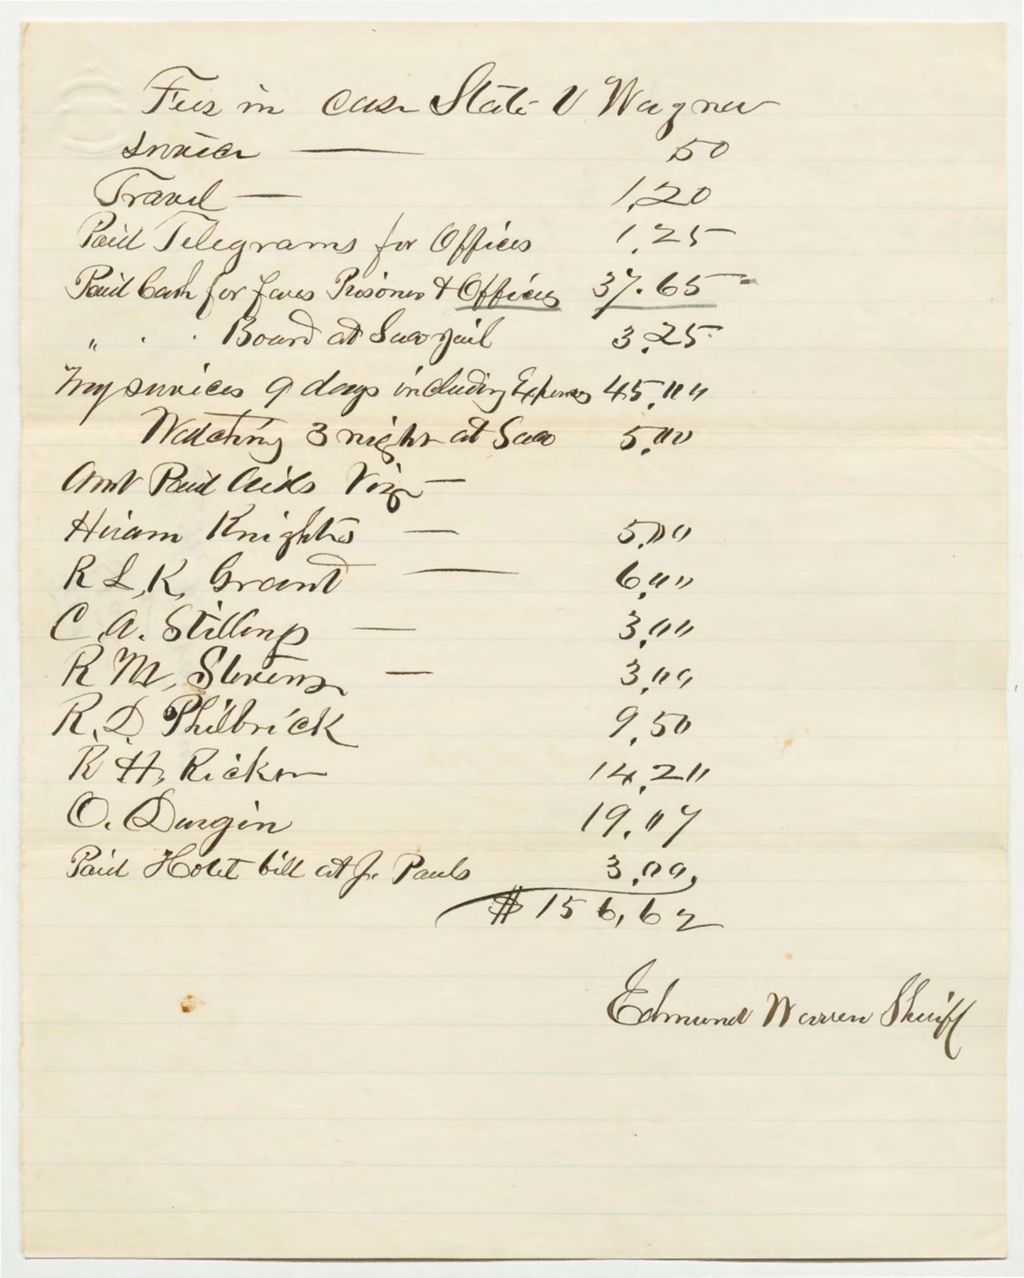 Fees in Case State V Wagner
Service — 50
Travel — 1,20
Paid Telegrams for Officers 1,25
Paid Cash for fares Prisoner & Officers 37.65
" " " Board at Saco Jail 3,25
My services 9 days including Expenses 45,00
Watching 3 night at Saco 5,00
Amt Paid Aids Viz —
Hiram Knights — 5,00
R L, K, Grant — 6,00
C. A. Stillings — 3,00
R M, Stevens — 3,00
R. D. Philbrick 9,50
R H, Ricker 14,20
O. Durgin 19,07
Paid Hotel bill at J. Pauls 3,00,
$156,62
Edmund Warren Sheriff